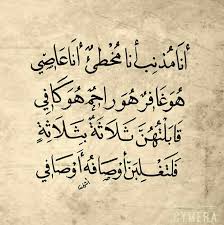 أَنَا مُذنِبٌ أَنَا مُخْطِئٌ أَنَا عَاصِي
هُوَ غَافِرٌ هُوَ رَاحِمٌ هُوَ كَافِي
قَابَلْتُهُنَّ ثَلَاثَةً بِثَلَاثَةٍ
فَلَتَغْلِبَنْ أَوْصَافُهُ أَوْصَافِي
CYMERA